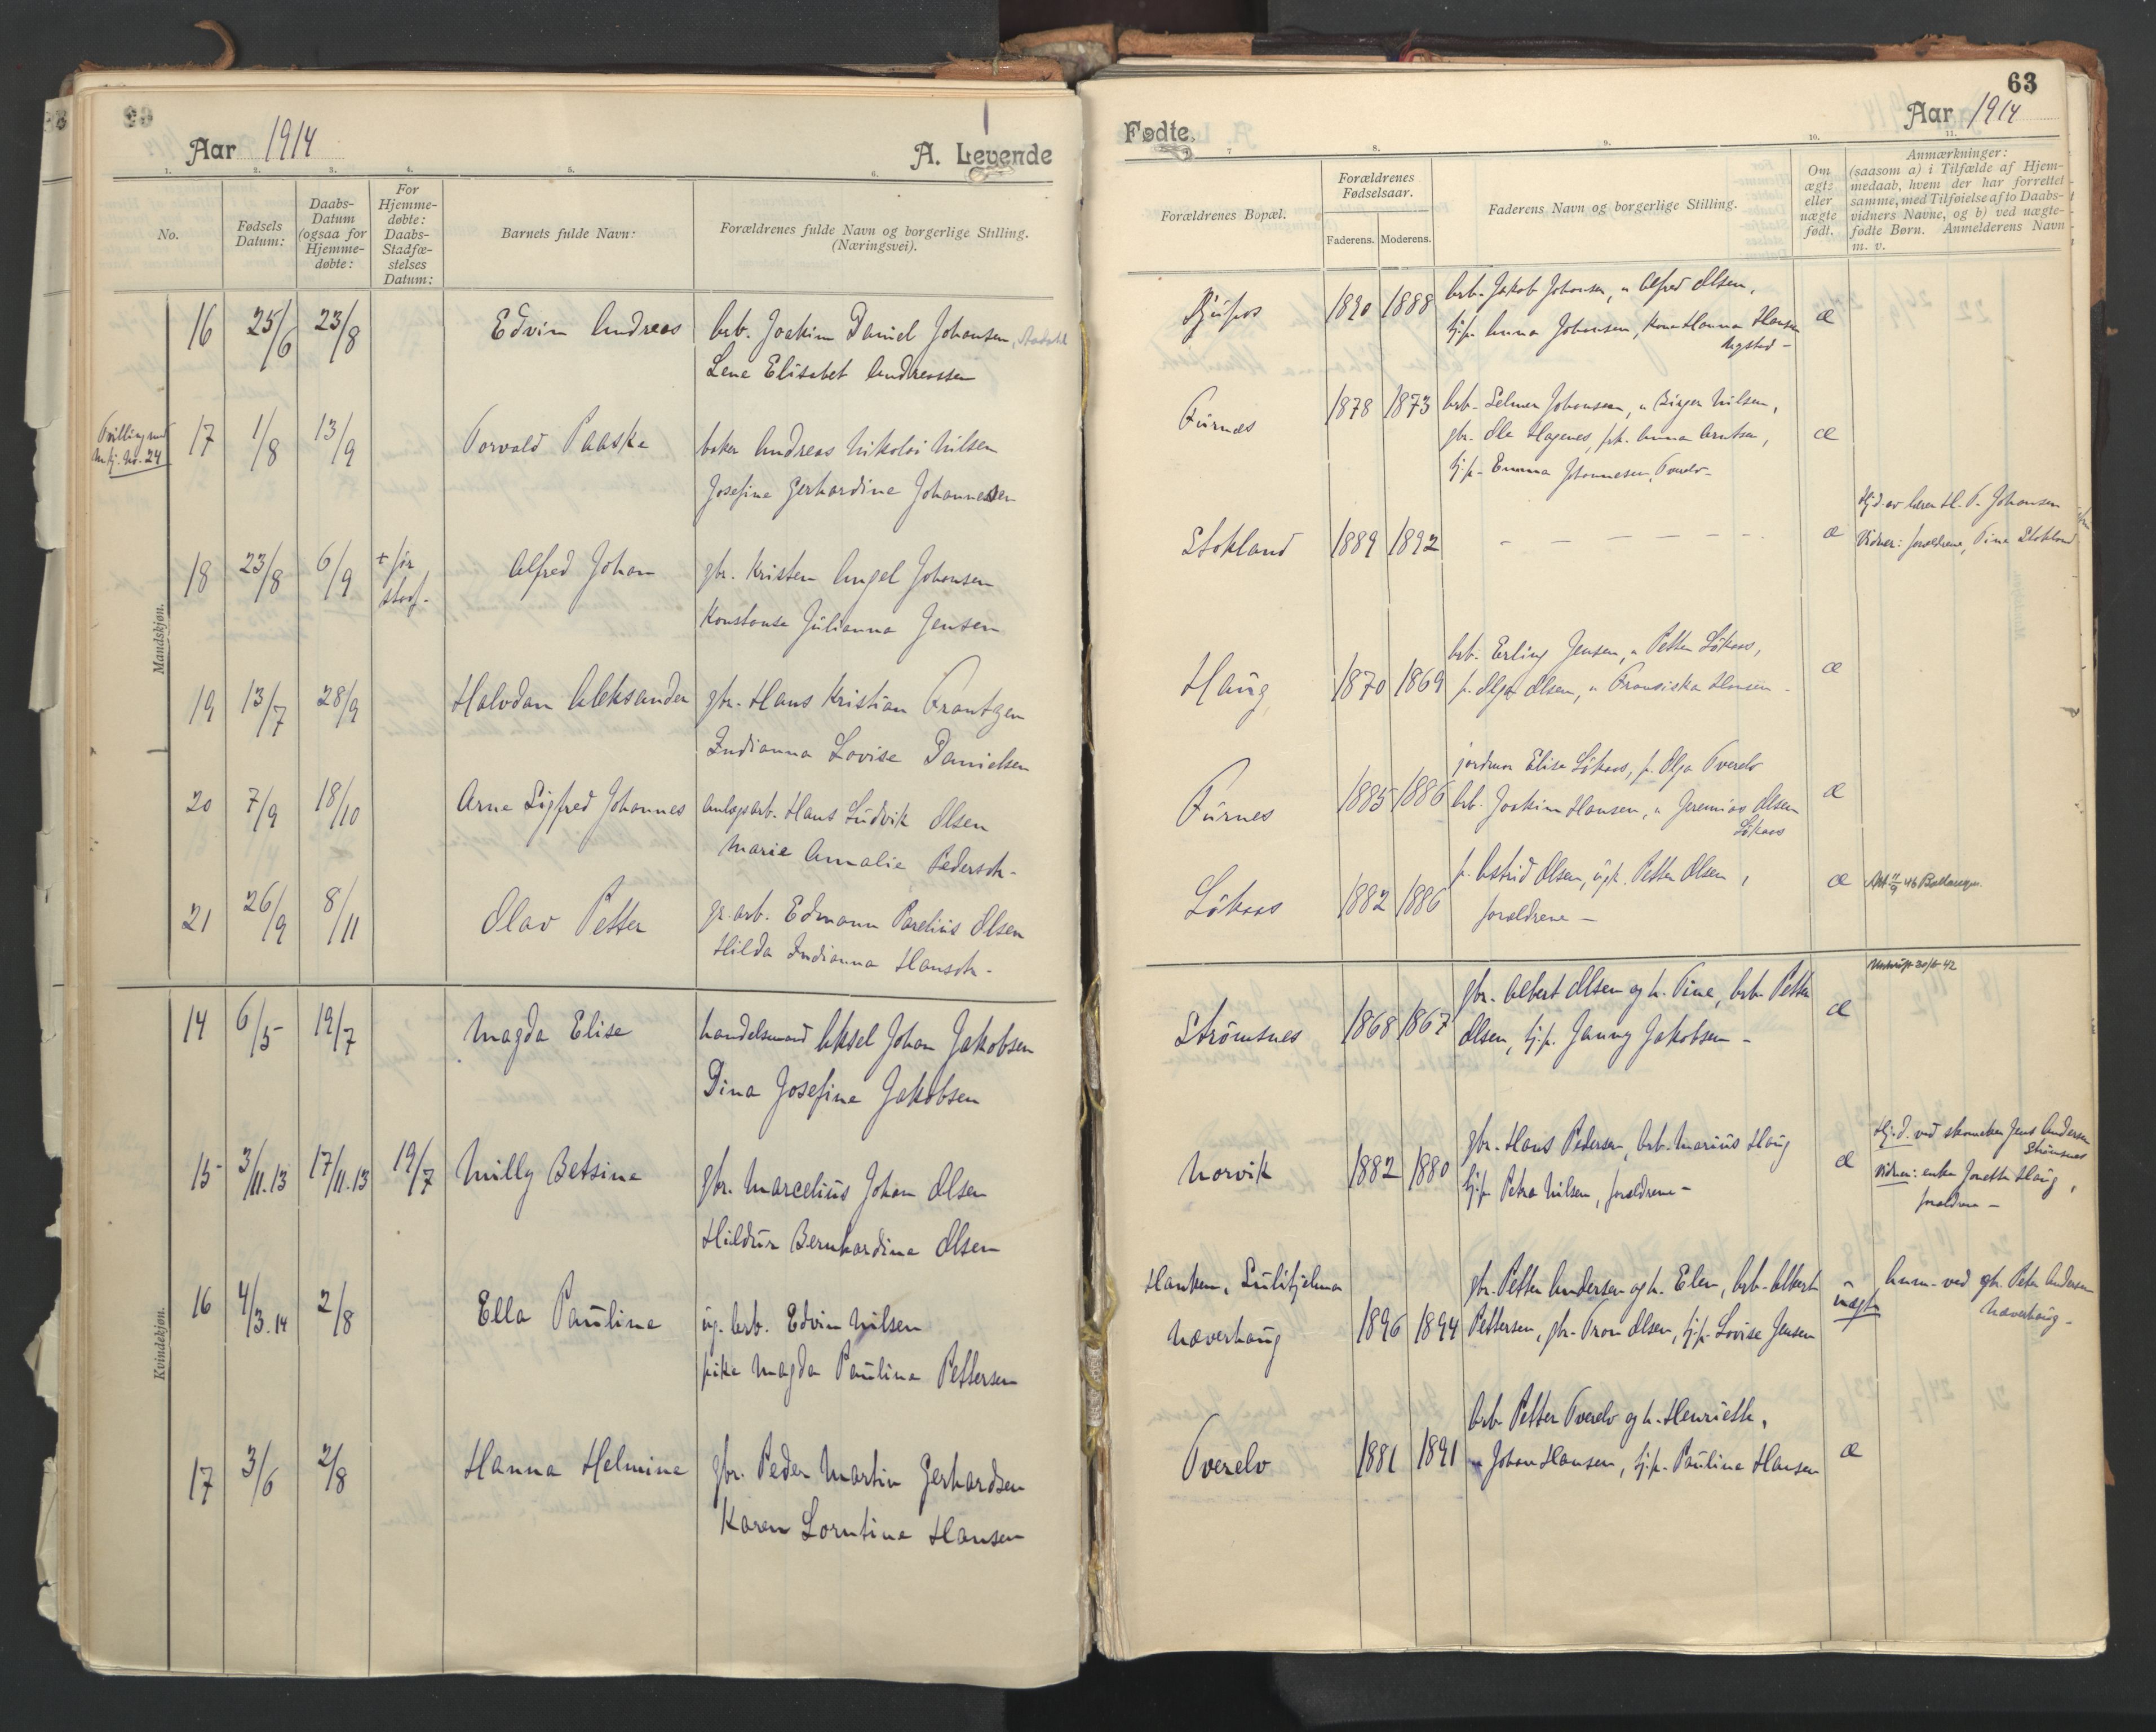 Aar 1914
A. Levende
1. 2. 3. 4. 5. 6.
No.
Fødsels Datum:
Daabs-Datum (ogsaa for Hjemme-døbte:
For Hjemme-døbte: Daabs-Stadfæ-stelses Datum:
Barnets fulde Navn:
Forældrenes fulde Navn og borgerlige Stilling.
(Næringsvei).
Mandskjøn.
16 25/6 23/8 Edvin Andreas arb. Joakim Daniel Johansen,
Lene Elisabet Andreassen
Tvilling med
kvkj. No. 24
17 1/8 13/9 Torvald Paaske baker Andreas Nikolai Nilsen
Josefine Gerhardine Johannessen
18 23/8 6/9 + før stadf. Alfred Johan gbr. Kristen Angel Johansen
Konstanse Julianna Jensen
19 13/7 28/9 Halvdan Aleksander gbr. Hans Kristian Frantzen
Indianna Lovise Danielsen
20 7/9 18/10 Arne Sigfred Johannes anlægsarb. Hans Ludvik Olsen
Marie Amalie Pedersdtr.
21 26/9 8/11 Olav Petter gr.arb. Edmann Parelius Olsen
Hilda Indianna Hansdtr.
Kvindekjøn.
14 6/5 19/7 Magda Elise handelsmand Aksel Johan Jakobsen
Dina Josefine Jakobsen
15 3/11.13 17/11.13 19/7 Milly Betsine gbr. Marcelius Johan Olsen
Hildur Bernhardine Olsen
16 4/3.14 2/8 Ella Pauline ug. arb. Edvin Nilsen
pike Magda Pauline Pettersen
17 3/6 2/8 Hanna Helmine gbr. Peder Martin Gerhardsen
Karen Lorntine Hansen
63
Fødte.
Aar 1914
7 8. 9. 10. 11.
Forældrenes Bopæl.
Forældrenes Fødselsaar.
Faderens. Moderens.
Faderens Navn og borgerlige Stilling.
Om ægte eller uægte født.
Anmærkninger:
(saasom a) i Tilfælde af Hjem-
medaab, hvem der har forrettet
samme, med Tilføielse af to Daabs-
vidners Navne, og b) ved uægte-
fødte Børn. Anmelderens Navn
m. v.
1890 1888 arb. Jakob Johansen, " Alfred Olsen,
tj.p. Anna Johansen, kone Hanna Hansen æ
Furnes 1878 1873 arb. Selmer Johansen, " Birger Nilsen,
gbr. Ole Hagenes, frk. Anna Arntsen, æ
tj.p. Emma Johannesen, Tverelv
Stokland 1889 1892 - - - - - - æ Hj.d. av læren H. P. Johansen
Vidner: forældrene, Tina Stokland
Haug 1870 1869 arb. Erling Jensen, " Petter Løkaas,
p. Olga Olsen, " Fransiska Hansen æ
Furnes 1885 1886 jordmor Elise Løkaas, p. Olga Tverelv
arb. Joakim Hansen, " Jeremias Olsen æ
Løkaas
Løkaas 1882 1886 p. Astrid Olsen, ugk. Petter Olsen,
forældrene – æ Att 11/9 46 Ballangen.
Utskrift 30/6-42
Strømsnes 1868 1867 gbr. Albert Olsen og h. Tine, arb. Petter
Olsen, tj.p. Janny Jakobsen – æ
Norvik 1882 1880 gbr. Hans Pedersen, arb. Marius Haug
tj.p. Petra Nilsen, forældrene – æ
Hj.d. ved skomaker Jens Andersen
Strømsnes
Vidner: enke Jonetta Haug,
forældrene –
Hanken, Sulitjelma
Næverhaug 1896 1894 gbr. Petter Andersen og h. Elen, arb. Albert
Pettersen, gbr. Tron Olsen, tj.p. Lovise Jensen
uægte
Anm. ved gbr. Peter Andersen
Næverhaug –
Tverelv 1881 1891 arb. Petter Tverelv og h. Henriette,
" Johan Hansen, tj.p. Pauline Hansen æ